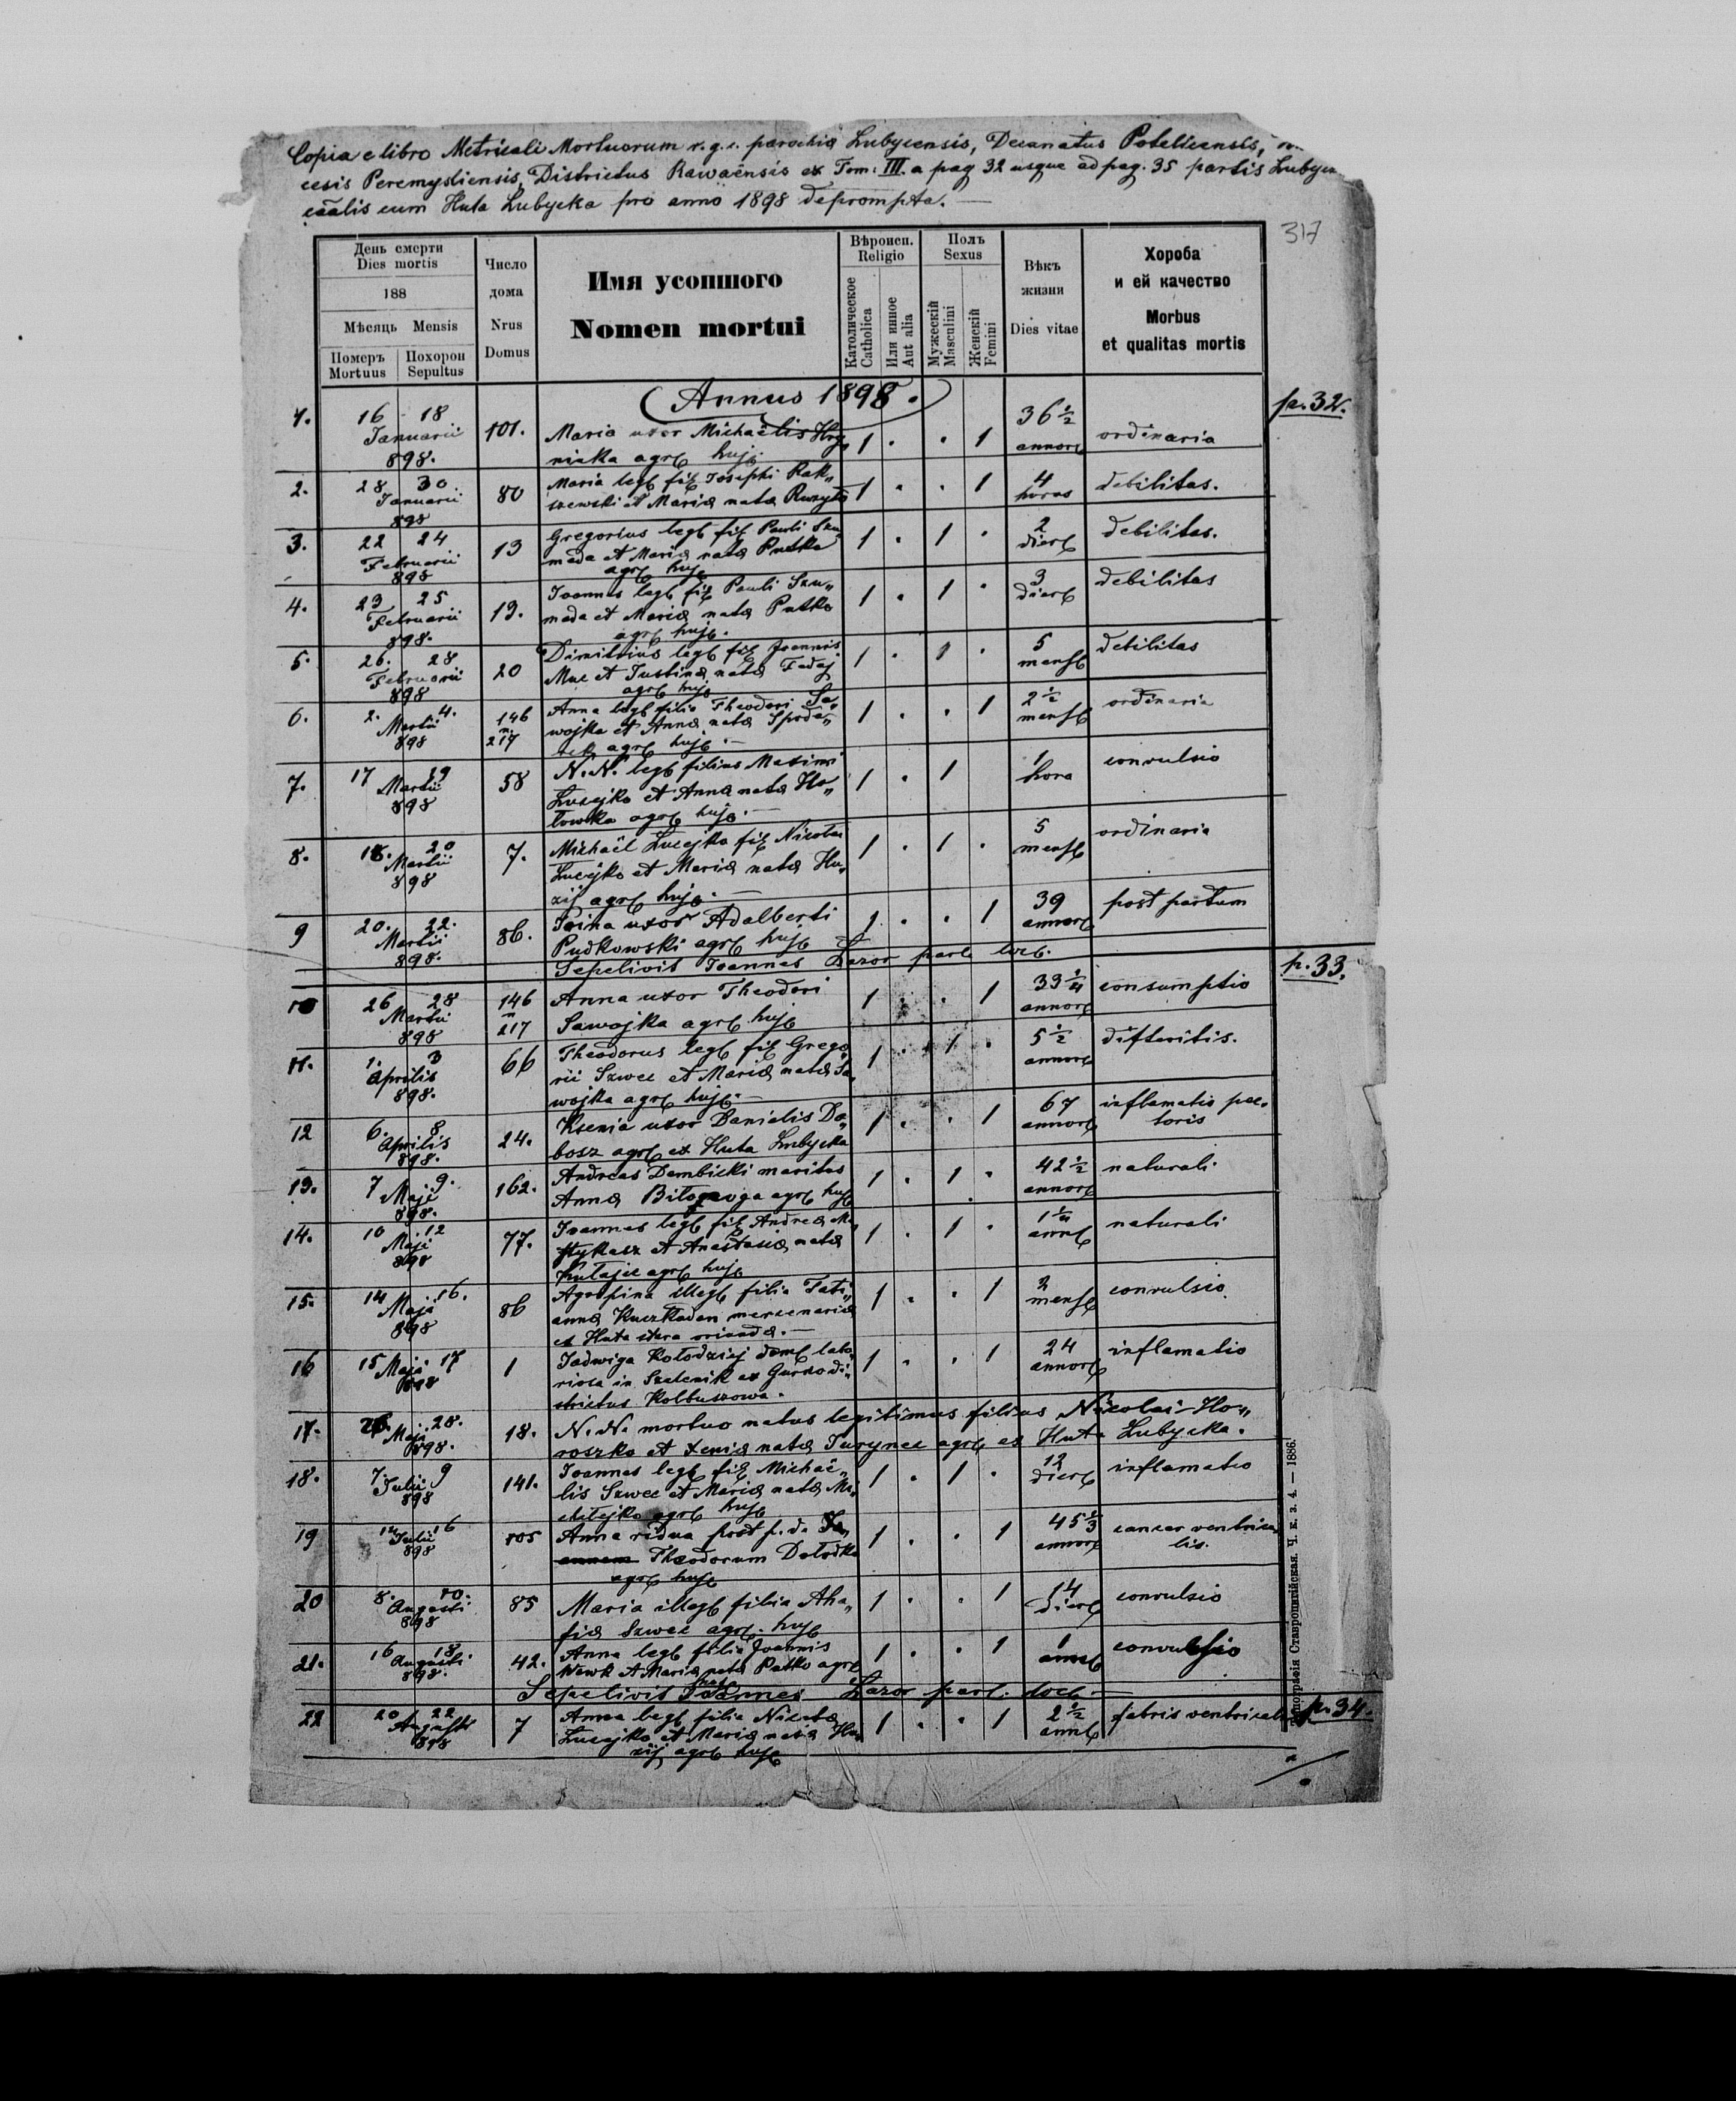 Copia e libro Metricali Mortuorum r. g. c. parochiæ Lubycensis, Decanatus Potelicensis,
cesis Peremysliensis, Districtus Rawaënsis ex Tom: III. a pag 32 usque ad pag. 35 partis
cum Huta Lubycka pro anno 1898 deprompta. —
317
День смерти
Dies mortis
188
Мѣсяць Mensis
Померъ Похорон
Mortuus Sepultus
Число
дома
Nrus
Domus
Имя усопшого
Nomen mortui
Вѣроисп.
Religio
Католическое
Catholica
Или инное
Aut alia
Полъ
Sexus
Мужескій
Masculini
Женскій
Femini
Вѣкъ
жизни
Dies vitae
Хороба
и ей качество
Morbus
et qualitas mortis
Annus 1898.
p. 32.
1. 16 18 Januarii 898. 101. Maria uxor Michaëlis
agr huj. 1 . . 1 36 1/2 annor ordinaria
2. 28 30 Januarii 898 80 Maria leg fil Josephi Rak„
szewski et Mariæ natæ 1 . . 1 4 horas debilitas.
3. 22 24 Februarii 898 13 Gregorius leg fil Pauli Szu„
mada et Mariæ natæ Putko
agr huj 1 . 1 . 2 dier debilitas.
4. 23 25 Februarii 898. 13. Joannes leg fil Pauli Szu„
mada et Mariæ natæ Putko
agr huj. 1 . 1 . 3 dier debilitas
5. 26. 28 Februarii 898 20 Dimitrius leg fil Joannis
et Justinæ natæ Fedaj
agr huj 1 . 1 . 5 mens debilitas
6. 2. 4. Martii 898 146 n. 217 Anna leg filia Theodori Sa„
wojka et Annæ natæ
agr huj. — 1 . . 1 2 1/2 mens ordinaria
7. 17 19 Martii 898 58 N. N. leg filius Maximi
Lucejko et Annæ natæ Ho„
lowka agr huj. — 1 . 1 1 hora convulsio
8. 18. 20 Martii 898 7. Michaël Lucejko fil Nicolai
Lucejko et Mariæ natæ Hu„
zij agr huj. — 1 . 1 . 5 mens ordinaria
9 20. 22. Martii 898. 86. uxor Adalberti
Pudkowski agr huj 1 . . 1 39 annor post partum
Sepelivit Joannes Lazor par loc.
p. 33.
10 26 28 Martii 898 146 n 217 Anna uxor Theodori
Sawojka agr huj 1 . . 1 33 1/4 annor consumptio
11. 1. 3 Aprilis 898. 66 Theodorus leg fil Grego„
rii Szwec et Mariæ natæ Sa„
wojka agr huj. — 1 . 1 . 5 1/2 annor difteritis.
12 6. 8 Aprilis 898. 24. Ksenia uxor Danielis Do„
bosz agr ex Huta Lubycka 1 . . 1 67 annor inflamatio pec„
toris
13. 7 9. Maji 898. 162. Andreas Dembicki maritus
Annæ agr huj 1 . 1 . 42 1/2 annor naturali
14. 10 12 Maji 898 77. Joannes leg fil Andreæ
et Anastasiæ natæ
agr huj 1 . 1 . 1 1/4 ann naturali
15. 14 16. Maji 898 86 Agrepina illeg filia Tati„
annæ mercenariæ
ex Huta stara oriundæ. — 1 . . 1 2 mens convulsio.
16 15 17 Maji 898 1 Jadwiga Kołodziej
in ex di„
strictus Kolbuszowa. 1 . . 1 24 annor inflamatio
17. 26. 28. Maji 898. 18. N. N. mortuo natus legitimus filius Nicolai Ho„
roszko et Xeniæ natæ Jurynec agr ex Huta Lubycka.
18. 7 9 Julii 898 141. Joannes leg fil Michaë„
lis Szwec et Mariæ natæ Mi„
agr huj 1 . 1 . 12 dier inflamatio
19 14 16 Julii 898 105 Anna vidua post p. d.
Theodorum Dołodko
agr huj 1 . . 1 45 1/3 annor cancer ventricu„
lis.
20 8. 10. Augusti 898 85 Maria illeg filia Aha„
fiæ Szwec agr. huj 1 . . 1 14 dier convulsio
21. 16 18 Augusti 898. 42. Anna leg filia Joannis
et Mariæ natæ Putko agr 1 . . 1 1 ann convulsio
Sepelivit Joannes Lazor par. loc —
p. 34.
22 20 22 Augusti 898 7 Anna leg filia Nicolai
Lucejko et Mariæ natæ Hu„
zij agr huj 1 . . 1 2 1/2 ann febris
Типографія Ставропигійская. Ч. к. з. 4. — 1886.